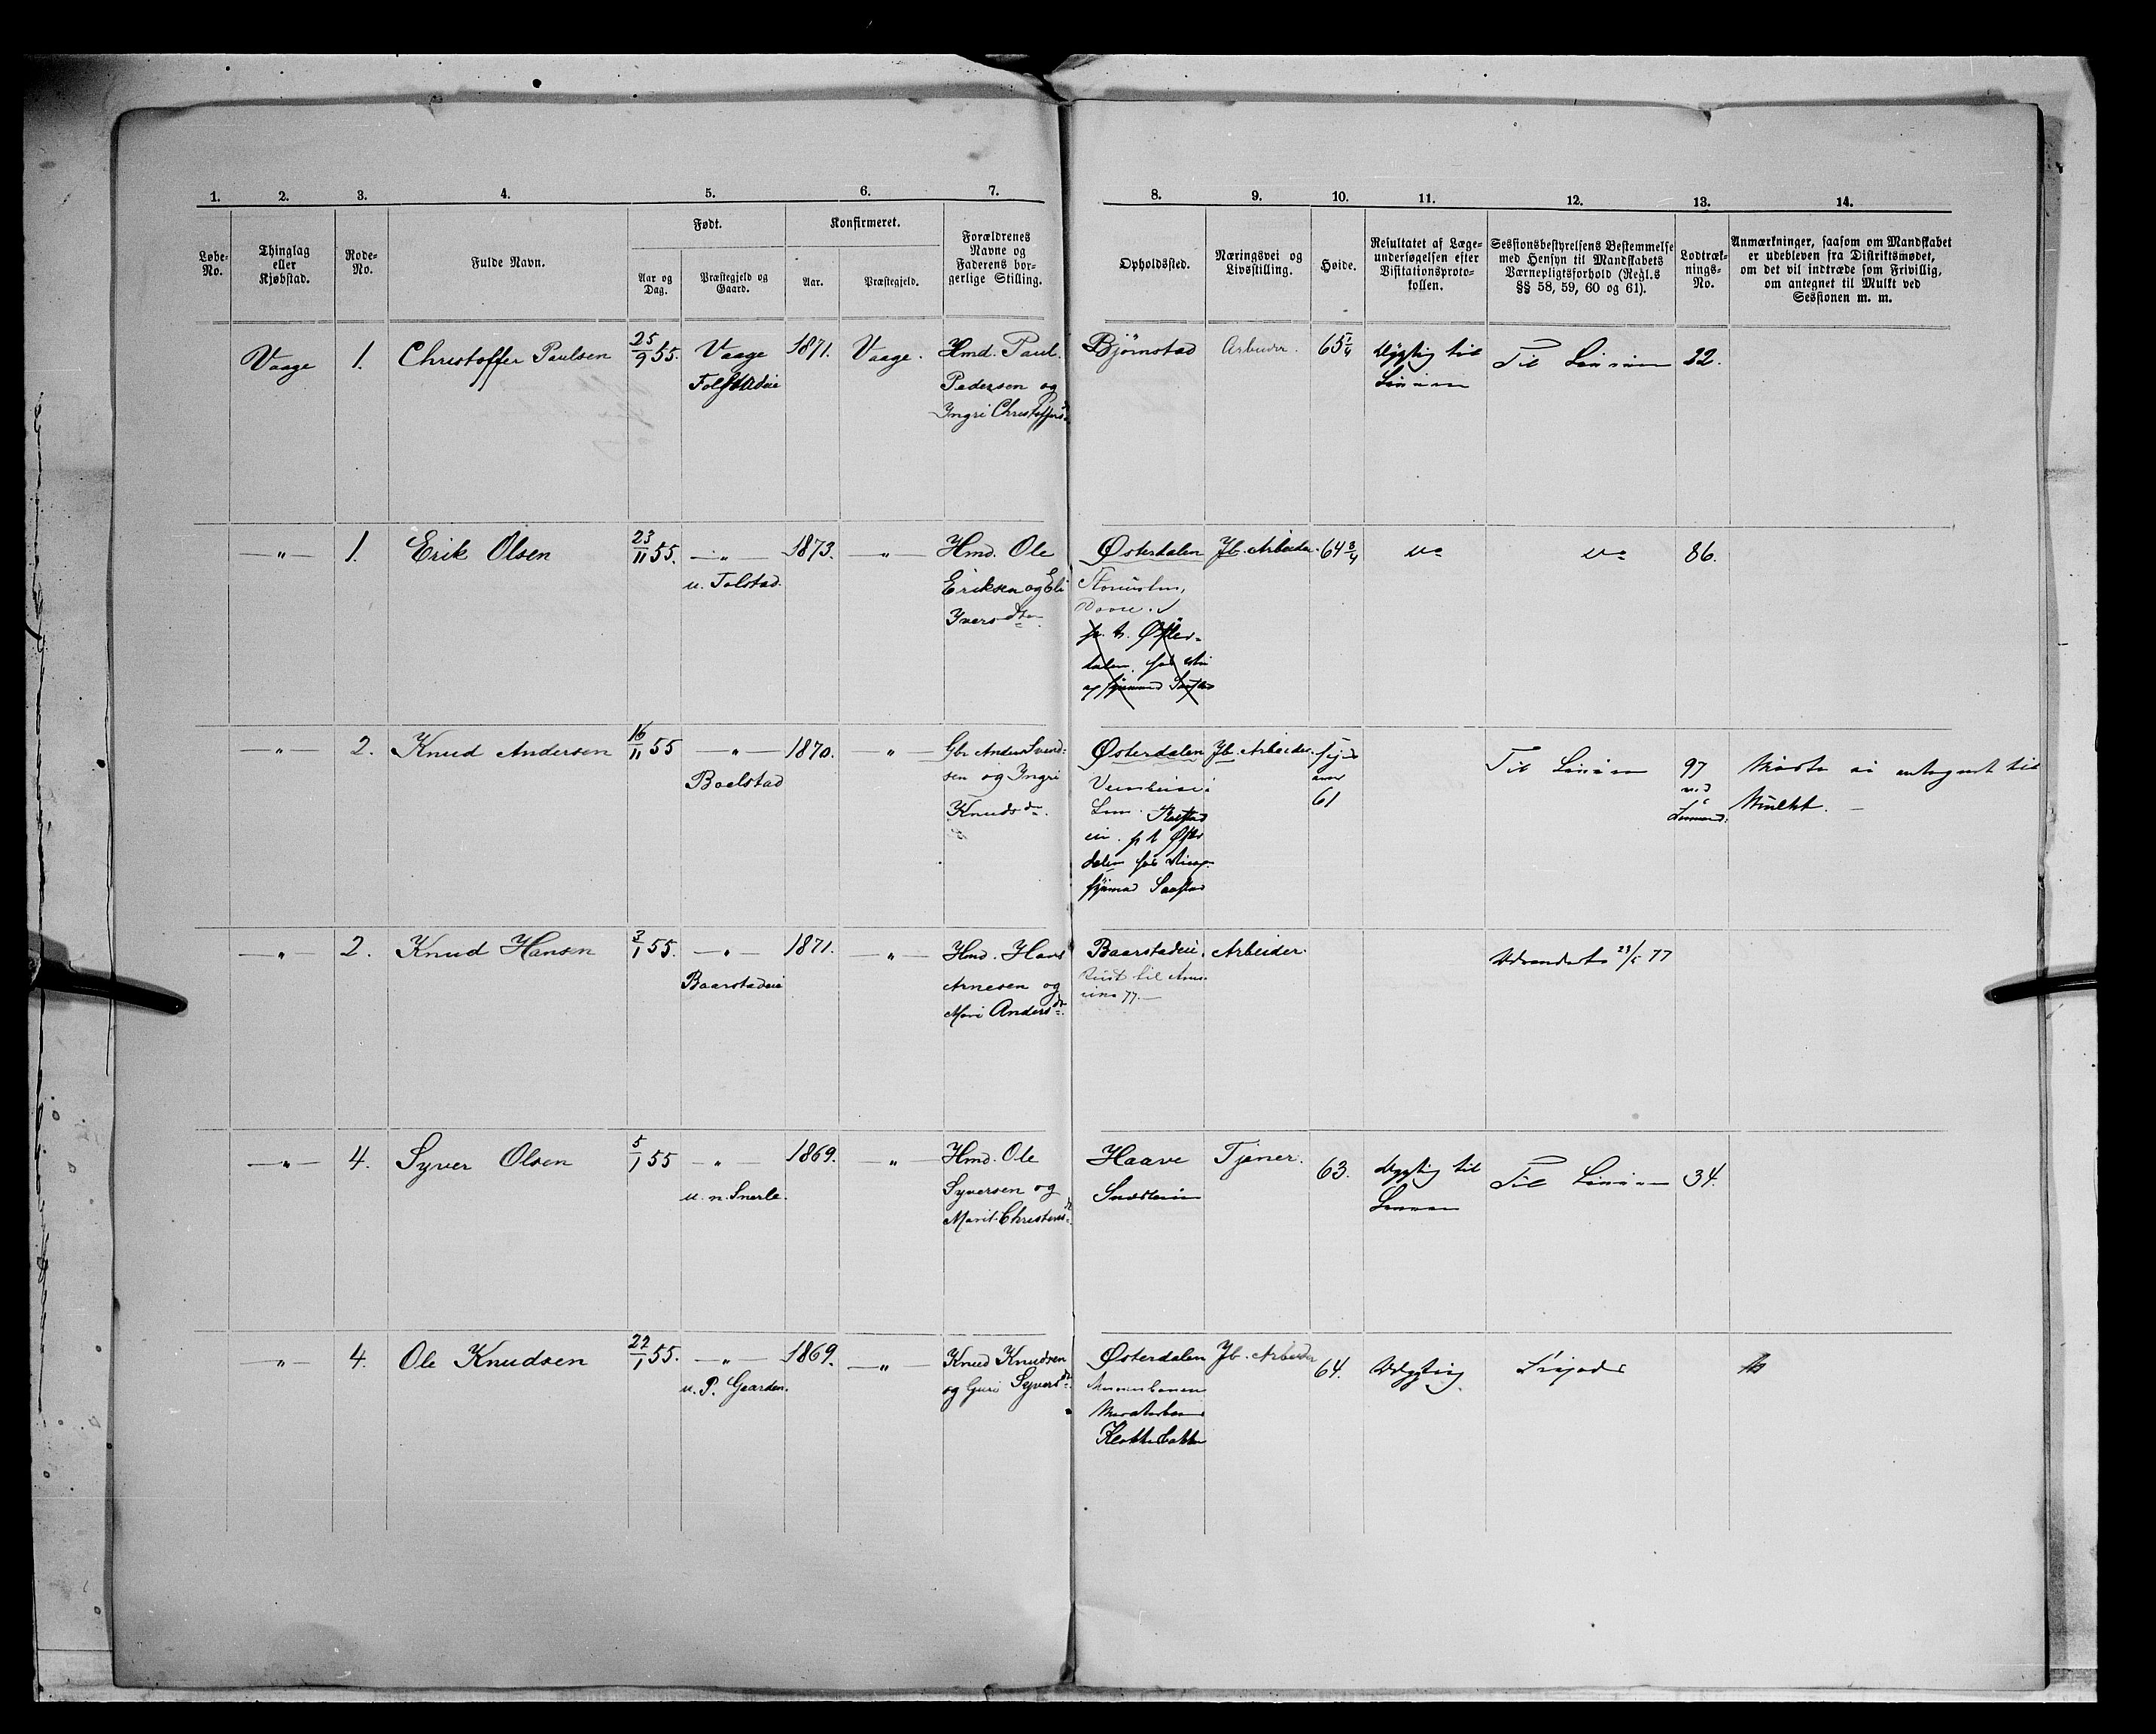 1. 2. 3. 4. 5. 6. 7. 8. 9. 10. 11. 12. 13. 14.
Løbe-No.
Thinglag eller Kjøbstad.
Rode-No.
Fulde Navn.
Født.
Aar og Dag.
Præstegjeld og Gaard.
Konfirmeret.
Aar.
Præstegjeld.
Forældrenes Navne og Faderens borgerlige Stilling.
Opholdssted.
Næringsvei og Livsstilling.
Høide.
Resultatet af Lægeundersøgelsen efter Visitationsprotokollen.
Sessionsbestyrelsens Bestemmelse med Hensyn til Mandskabets Værnepligtsforhold (Regl.s §§ 58, 59, 60 og 61).
Lodtræknings-No.
Anmærkninger, saasom om Mandskabet er udebleven fra Distriktsmødet, om det vil indtræde som Frivillig, om antegnet til Mulkt ved Sessionen m. m.
Vaage 1. Christoffer Paulsen 25/9 55. Vaage 1871. Vaage. Hmd. Paul Bjørnstad Arbeider. 65 1/4 Dygtig til Til Linien 22.
Pedersen og Linien
Ingri Christoffersdr.
—„— 1. Erik Olsen 23/11 55. —„— 1873. —„— Hmd. Ole Østerdalen Jb. Arbeider. 64 3/4 86.
u. Tolstad. Eriksen og Eli
Iversdtr.
p. t. Østerdalen
—„— 2. Knud Andersen 16/11 55 —„— 1870. —„— Gbr. Anders Svend- Østerdalen Jb. Arbeider. Til Linien 97 Mødte ei antegnet til
Boelstad sen og Ingri 61 Mulkt.
Knudsdr.
p t Øster
dalen
—„— 2. Knud Hansen 3/1 55. —„— 1871. —„— Hmd. Hans Baarstadeie. Arbeider. Udvandret 23/5 77
Baarstadeie Arnesen og reist til Ame
Mari Andersdr. rika 77.
—„— 4. Syver Olsen 5/1 55 —„— 1869. —„— Hmd. Ole Haave Tjener. 63. Dygtig til Til Linien 34.
u. n. Snerle. Syversen og Linien
Marit Christensdr.
—„— 4. Ole Knudsen 22/1 55. —„— 1869. —„— Knud Knudsen Østerdalen Jb. Arbeider 64. Udygtig
u. P. Gaarden. og Guri Syversdr.
Klokkerbakke